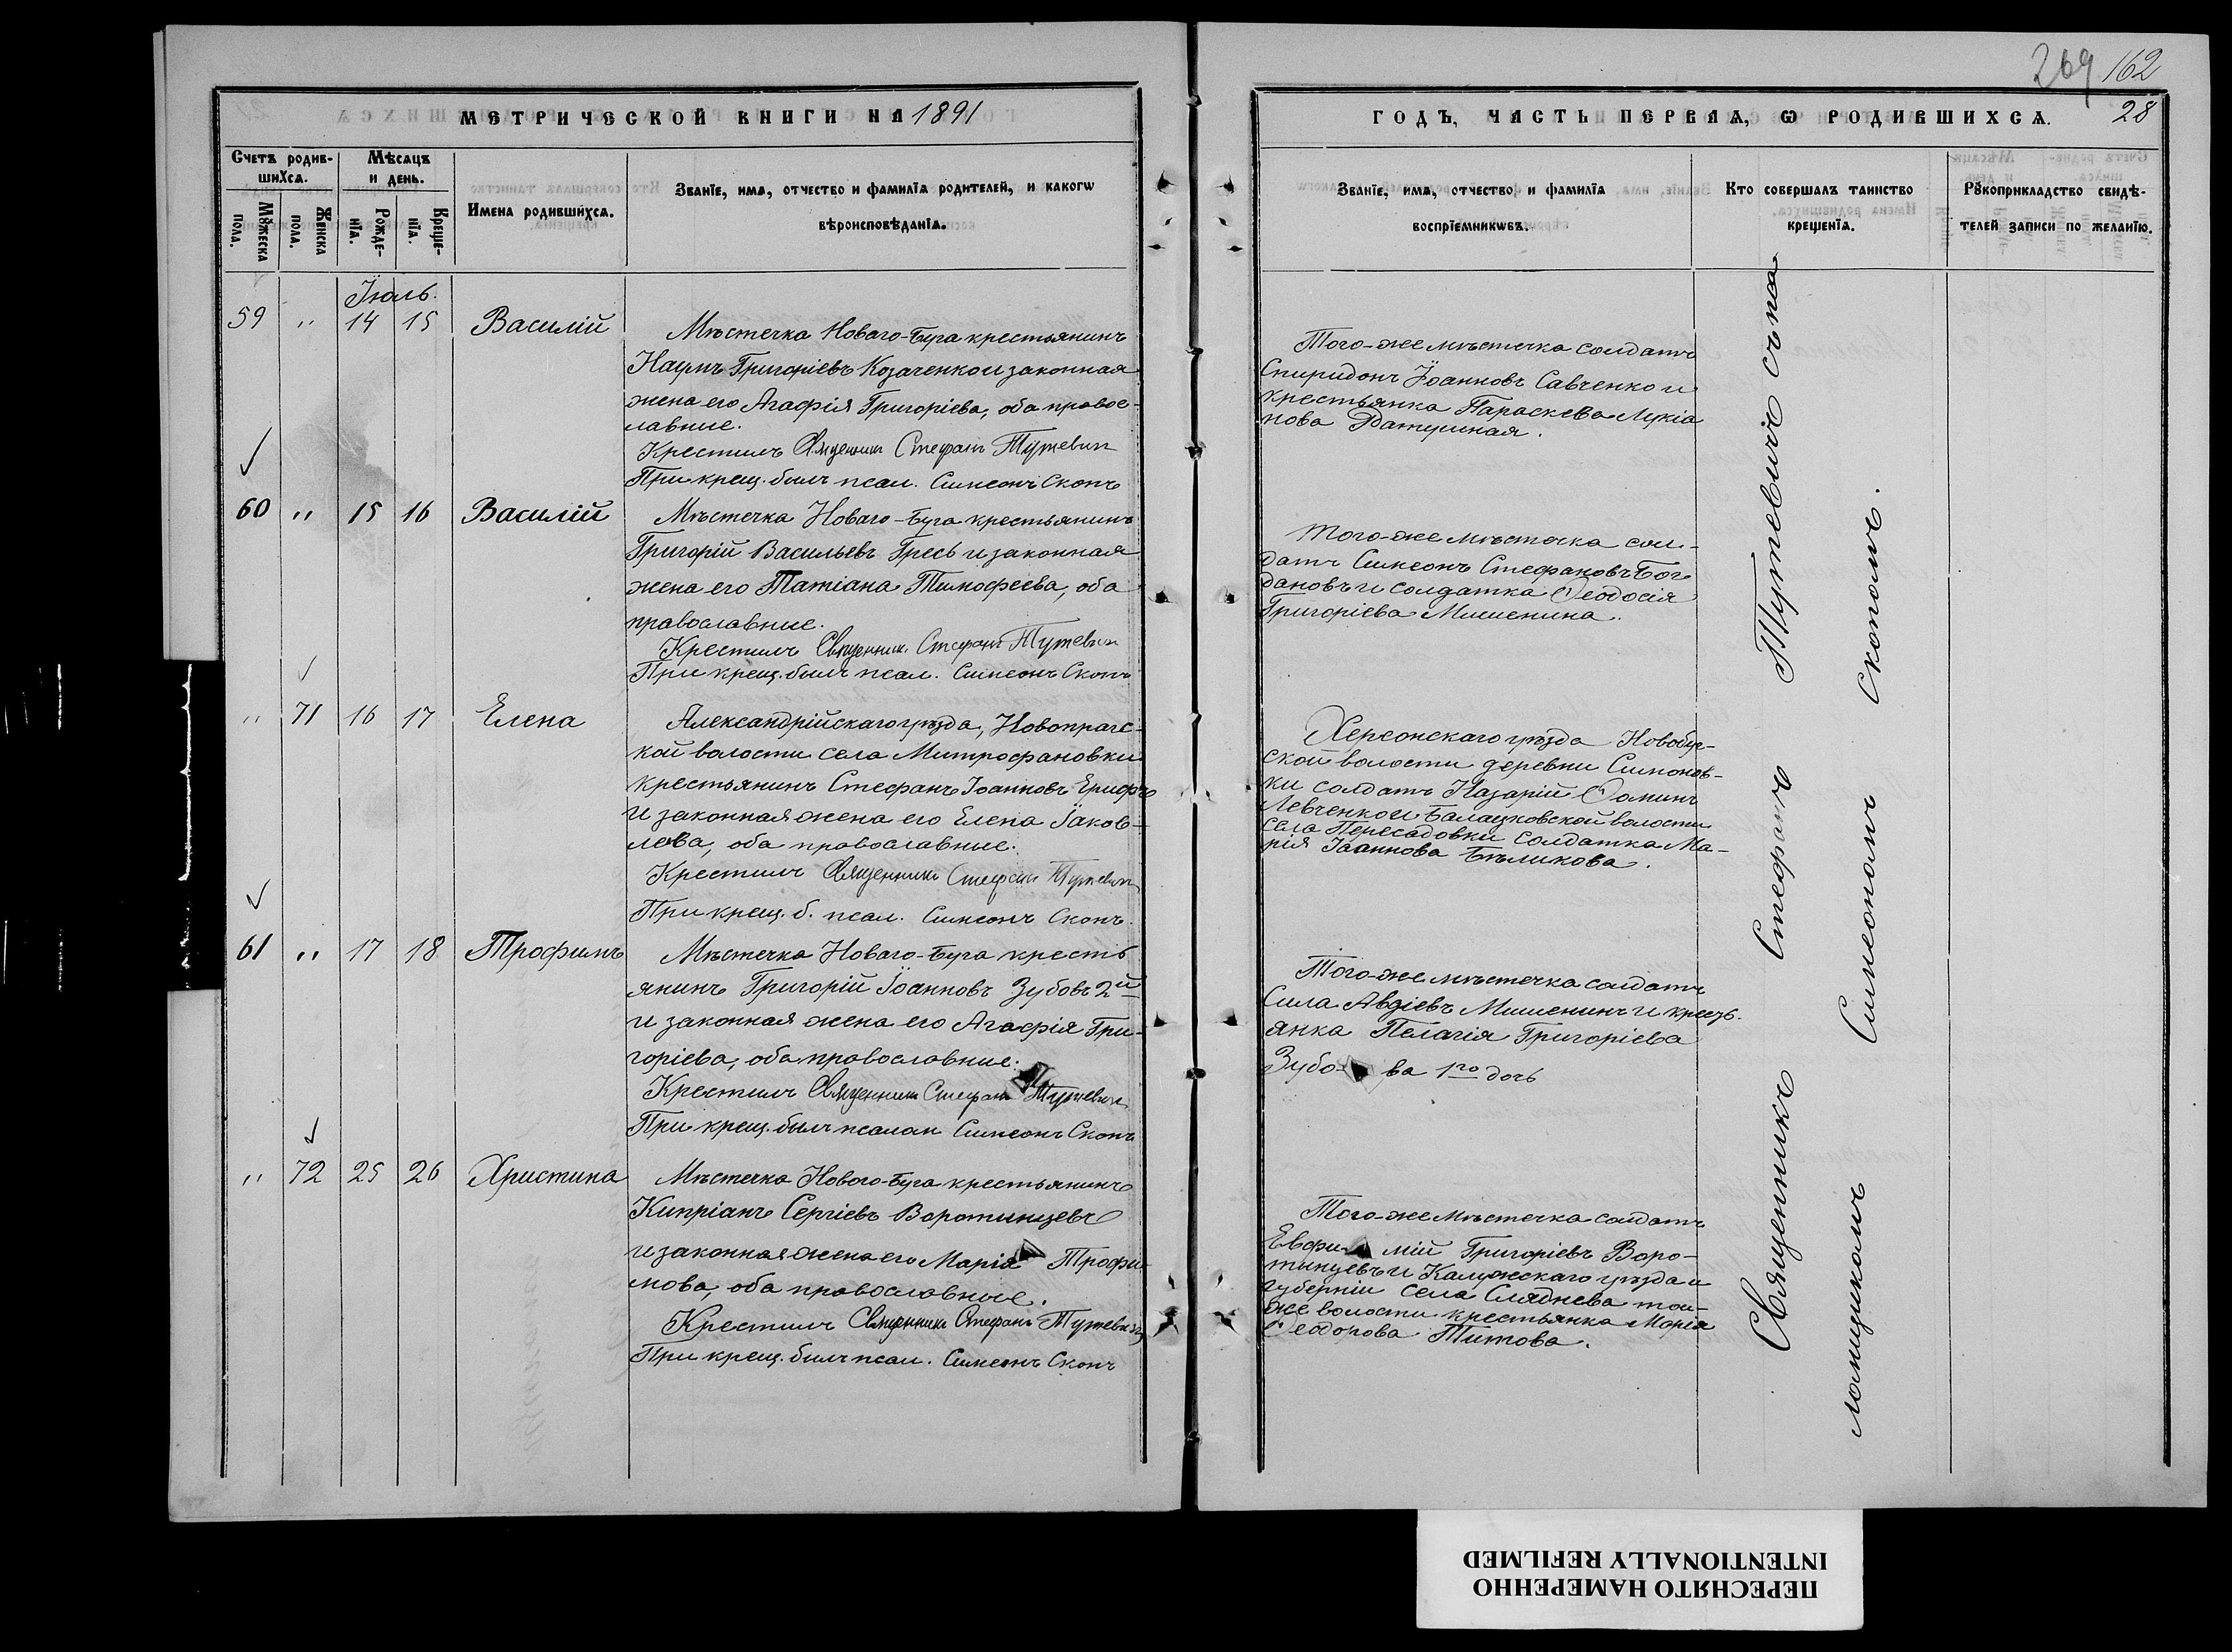 269 162
МЕТРИЧЕСКОЙ КНИГИ НА 1891
ГОДЪ, ЧАСТЬ ПЕРВАѦ, Ѡ РОДИВШИХСѦ. 28
Счетъ родив-
шихсѧ.
Мꙋжеска
пола.
Женска
пола.
Мѣсѧцъ
и день.
Рожде-
нїѧ.
Креще-
нїѧ.
Имена родившихсѧ.
Званїе, имѧ, отчество и фамилїѧ родителей, и какогѡ
вѣроисповѣданїѧ.
Званїе, имѧ, отчество и фамилїѧ
воспрїемникѡвъ.
Кто совершалъ таинство
крещенїѧ.
Рꙋкоприкладство свидѣ-
телей записи по желанїю.
Іюль.
59 " 14 15 Василій
Мѣстечка Новаго-Буга крестьянинъ
Наумъ Григоріевъ Козаченко и законная
жена его Агафія Григоріева, оба правос-
лавные.
Крестилъ Священникъ Стефанъ Тутевич
При крещ. былъ псал. Симеонъ Скопъ
Того-же мѣстечка солдатъ
Спиридонъ Іоанновъ Савченко и
крестьянка Параскева Лукіа
нова
60 " 15 16 Василій
Мѣстечка Новаго-Буга крестьянинъ
Григорій Васильевъ Гресь и законная
жена его Татіана Тимофеева, оба
православные.
Крестилъ Священник Стефанъ Тутевич
При крещ. былъ псал. Симеонъ Скопъ
Того-же мѣстечка сол-
датъ Симеонъ Стефановъ Бог
дановъ и солдатка Ѳеодосія
Григоріева Мишенина.
" 71 16 17 Елена
Александрійскаго уѣзда, Новопрагс-
кой волости села Митрофановки
крестьянинъ Стефанъ Іоанновъ
и законная жена его Елена Іаков-
лева, оба православные.
Крестилъ Священникъ Стефанъ Тутевич
При крещ. б. псал. Симеонъ Скопъ.
Херсонскаго уѣзда Новобуг-
ской волости деревни Симонов-
ки солдатъ Назарій Ѳоминъ
Левченко и Балацковской волости
села Пересадовки солдатка Ма-
рія Іоаннова Бѣликова.
61 " 17 18 Трофимъ
Мѣстечка Новаго-Буга кресть
янинъ Григорій Іоанновъ Зубовъ 2й
и законная жена его Агафія Гри-
горіева, оба православные.
Крестилъ Священникъ Стефанъ Тутевич
При крещ. былъ псалом Симеонъ Скопъ
Того-же мѣстечка солдатъ
Сила Авдіевъ Мишенинъ и кресть-
янка Пелагія Григоріева
Зубо ва 1го дочь
" 72 25 26 Христина
Мѣстечка Нового-Буга крестьянинъ
Кипріанъ Сергіевъ Воротынцевъ
и законная жена его Марія Трофи-
мова, оба православные.
Крестилъ Священникъ Стефанъ Тутевичъ
При крещ. былъ псал. Симеонъ Скопъ
Того-же мѣстечка солдатъ
Евфи мій Григоріевъ Воро-
тынцевъ и Калужскаго уѣзда и
губерніи села Сляднева той-
же волости крестьянка Марія
Ѳеодорова Титова.
Священникъ Стефанъ Тутевичъ съ пса
ломщикомъ Симеономъ Скопомъ.
ПЕРЕСНЯТО НАМЕРЕННО
INTENTIONALLY REFILMED